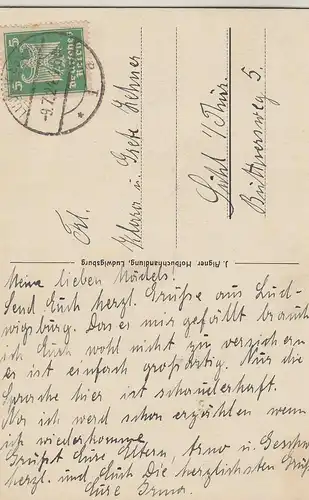 Deutsches
Reich
5
5
9.7.2
Frl.
Klara u. Grete Zehner
Suhl i/Thür.
Büttnersweg 5.
J. Aigner Hofbuchhandlung, Ludwigsburg
Meine lieben Mädels!
Send Euch herzl. Grüße aus Lud-
wigsburg. Das es mir gefällt brauch
ich Euch wohl nicht zu versichern
er ist einfach großartig. Nur die
Sprache hier ist schauderhaft.
ich werd schon erzählen wenn
ich wiederkomme.
Grüßt Eure Eltern, Arno u. Geschw.
herzl. und Euch die herzlichsten Grüße
Eure Erna.